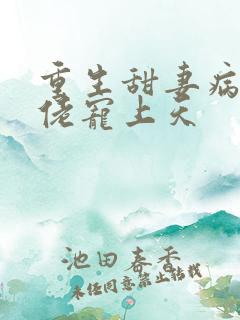 重生甜妻病
佬寵上天
池田春香
未经同意禁止转载